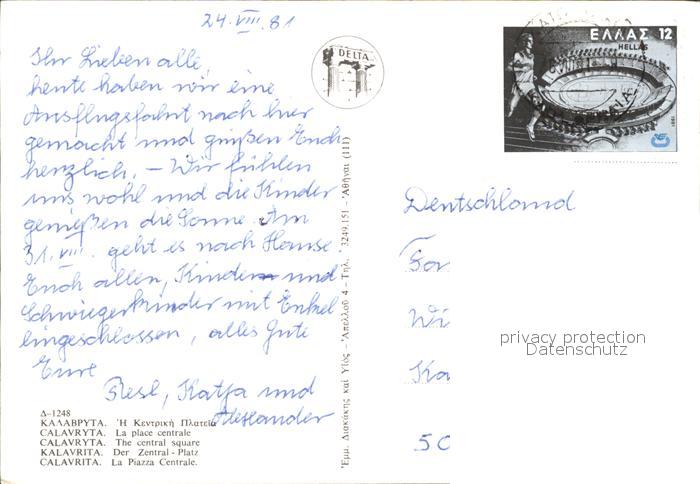 24.VIII.81
Ihr Lieben alle,
heute haben wir eine
Ausflugsfahrt nach hier
gemacht und grüßen Euch
herzlich. – Wir fühlen
uns wohl und die Kinder
genießen die Sonne. Am
31.VIII. geht es nach Hause
Euch allen, Kinder und
Schwiegerkinder mit Enkel
eingeschlossen, alles Gute
Eure
Resl, Katja und
Alexander
Δ-1248
ΚΑΛΑΒΡΥΤΑ. Ἡ Κεντρικὴ Πλατεῖα
CALAVRYTA. La place centrale
CALAVRYTA. The central square
KALAVRITA. Der Zentral - Platz
CALAVRITA. La Piazza Centrale.
DELTA
Ἐμμ. Διακάκης καὶ Υἱὸς – Ἀπελλοῦ 4 – Τηλ. 3249.151 - Ἀθῆναι (111)
ΕΛΛΑΣ 12
HELLAS
1981
Deutschland
Wi
Ka
50
privacy protection
Datenschutz